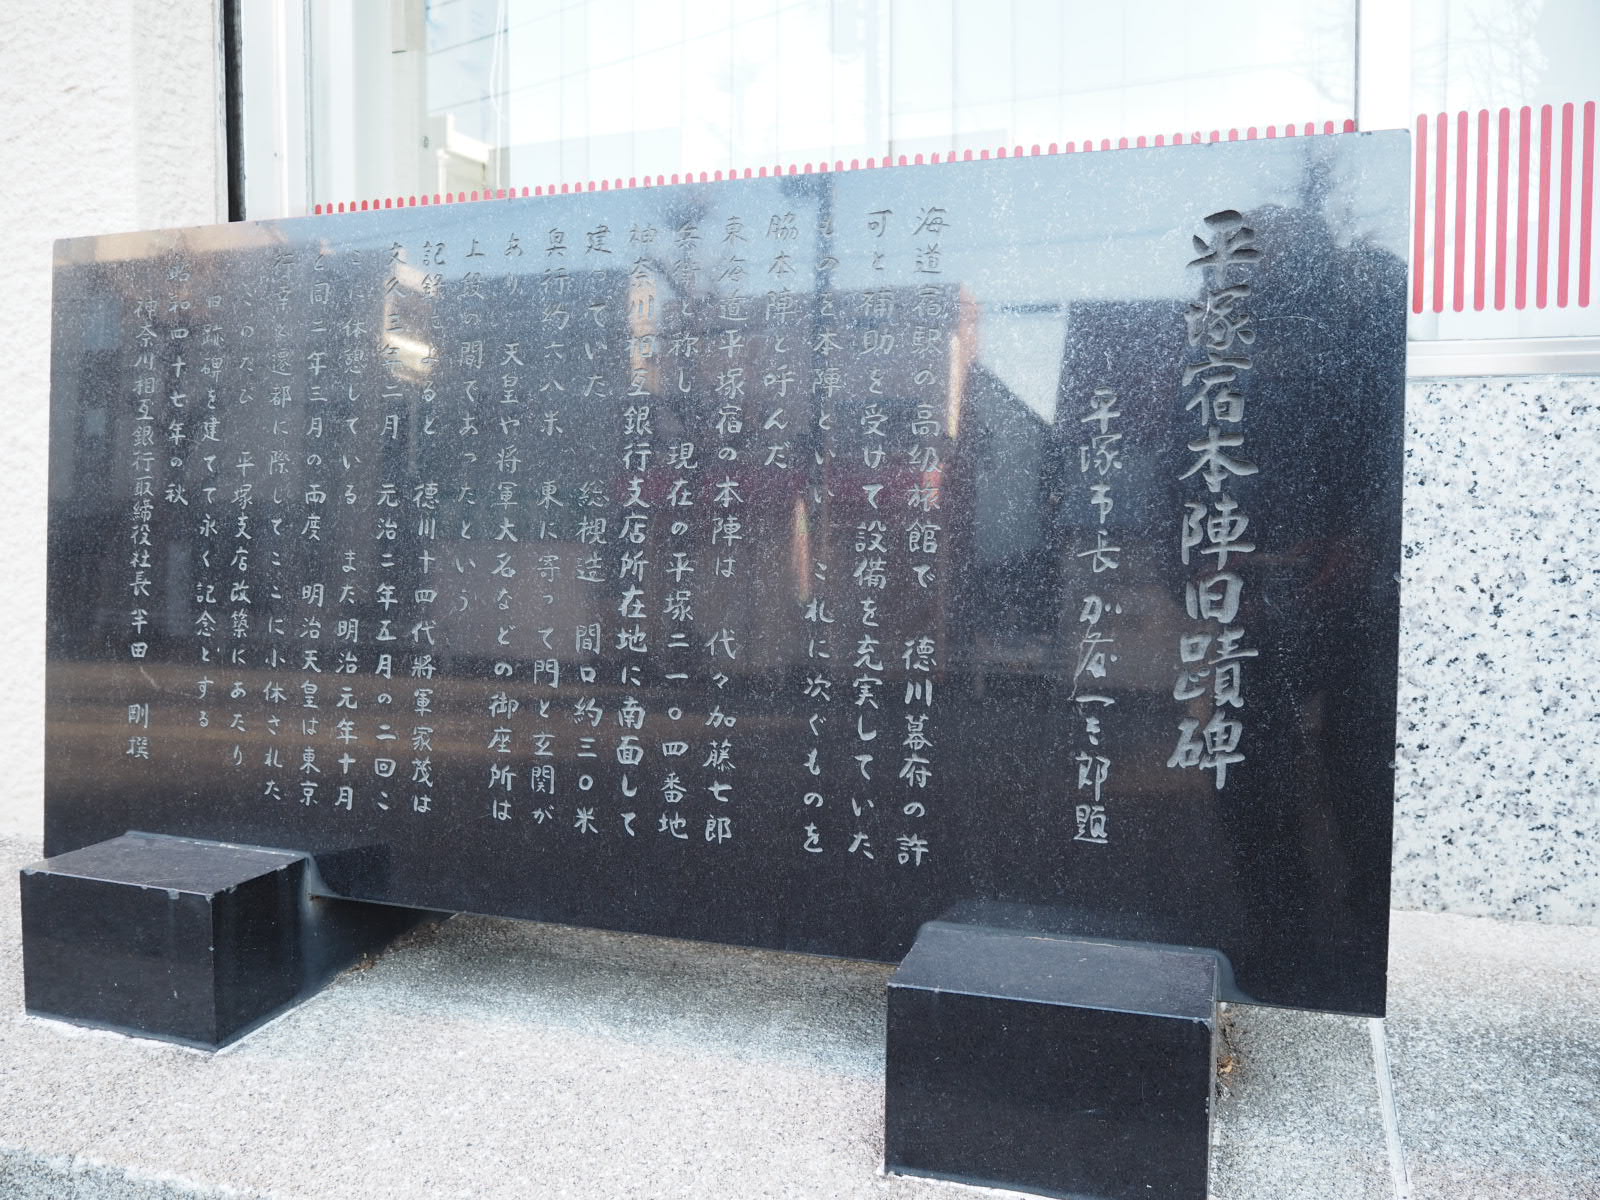 平塚宿本陣旧蹟碑
平塚市長 加藤一太郎題
海道宿駅の高級旅館で 徳川幕府の許
可と補助を受けて設備を充実していた
ものを本陣といい これに次ぐものを
脇本陣と呼んだ
東海道平塚宿の本陣は 代々加藤七郎
兵衛と称し 現在の平塚二一〇四番地
神奈川相互銀行支店所在地に南面して
建っていた 総槻造 間口約三〇米
奥行約六八米 東に寄って門と玄関が
あり 天皇や将軍大名などの御座所は
上段の間であったという
記録によると 徳川十四代将軍家茂は
文久三年二月 元治二年五月の二回こ
こに休憩している また明治元年十月
と同二年三月の両度 明治天皇は東京
行幸と遷都に際してここに小休された
このたび 平塚支店改築にあたり
旧跡碑を建てて永く記念とする
昭和四十七年の秋
神奈川相互銀行取締役社長 半田 剛撰